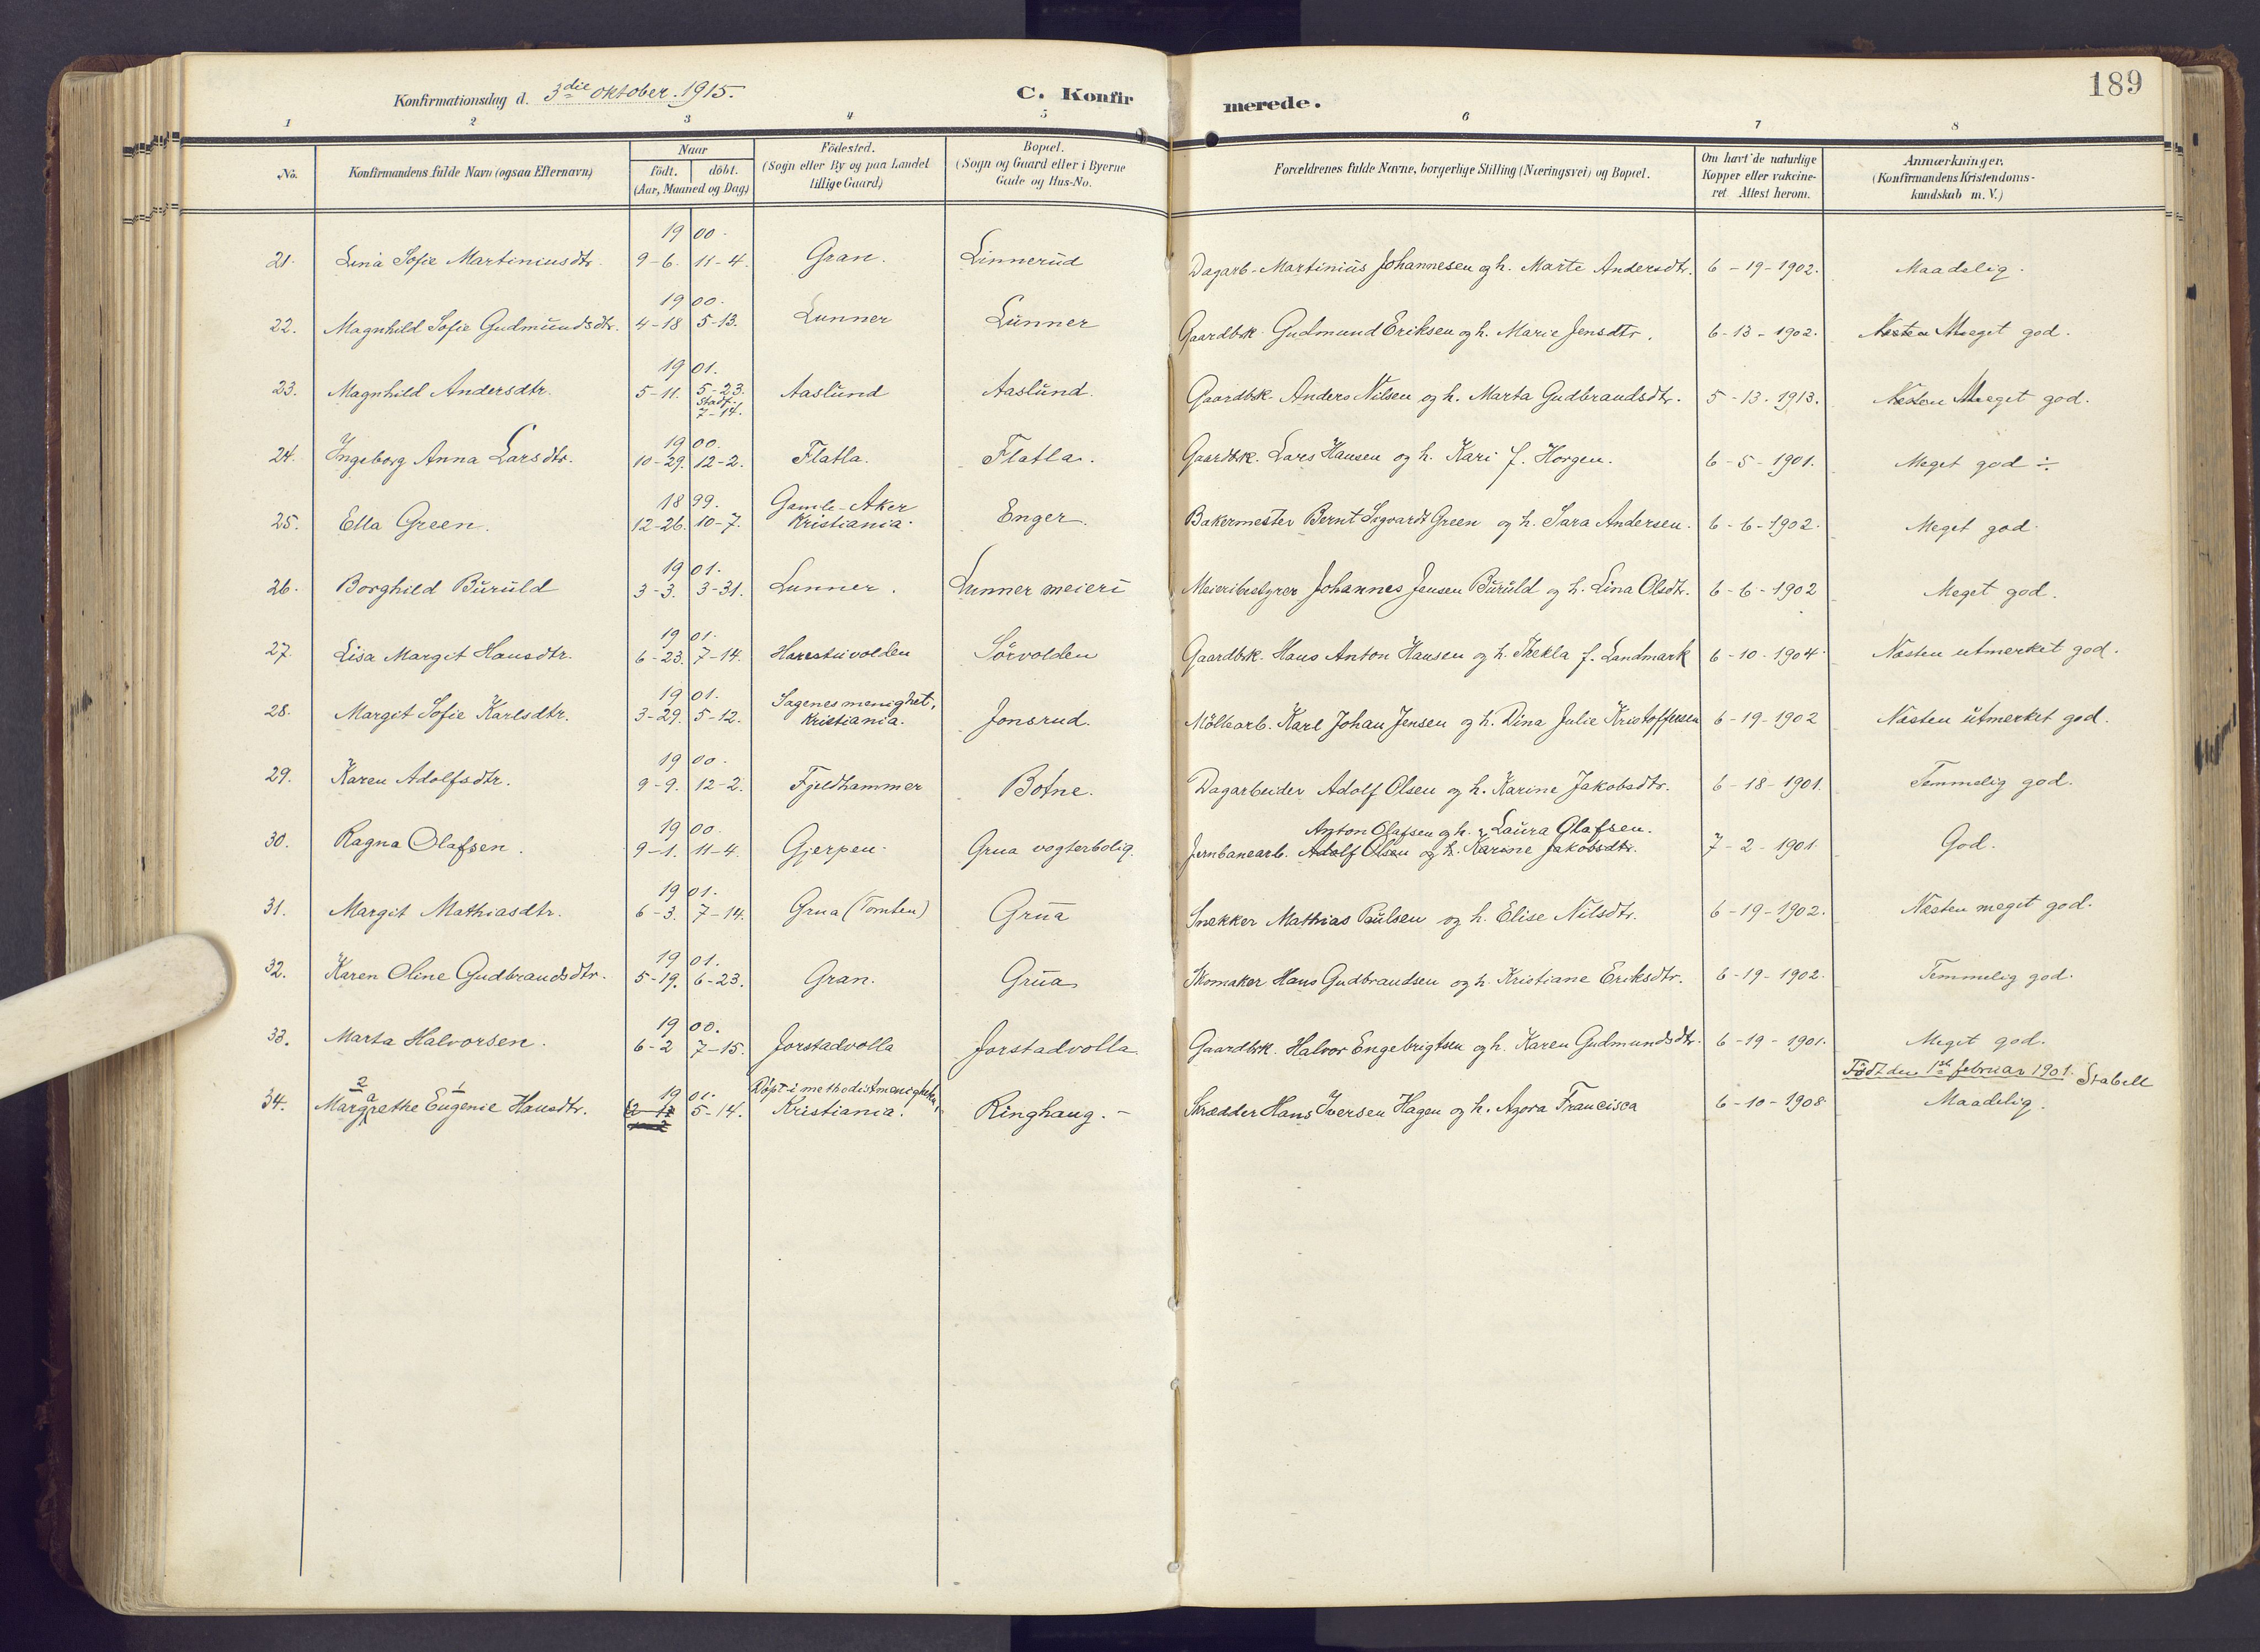 Konfirmationsdag d. 3die oktober. 1915. C. Konfirmerede. 189
1 2 3 4 5 6 7 8
No. Konfirmandens fulde Navn (ogsaa Efternavn) Naar födt. döbt. (Aar, Maaned og Dag) Födested. (Sogn eller By og paa Landet tillige Gaard) Bopæl. (Sogn og Gaard eller i Byerne Gade og Hus-No. Forældrenes fulde Navne, borgerlige Stilling (Næringsvei) og Bopæl. Om havt de naturlige Kopper eller vakcineret Attest herom. Anmærkninger. (Konfirmandens Kristendomskundskab m. V.)
1900.
21. Lina Sofie Martiniusdtr. 9-6. 11-4. Gran. Linnerud Dagarb. Martinius Johannesen og h. Marte Andersdtr. 6-19-1902. Maadelig.
1900.
22. Magnhild Sofie Gudmundsdtr. 4-18 5-13. Lunner Lunner Gaardbk. Gudmund Eriksen og h. Marie Jensdtr. 6-13-1902. Næsten Meget god.
1901.
23. Magnhild Andersdtr. 5-11. 5-23. Stadf. 7-14. Aaslund Aaslund. Gaardbk. Anders Nilsen og h. Marta Gudbrandsdtr. 5-13.1913. Næsten Meget god.
1900.
24. Ingeborg Anna Larsdtr. 10-29. 12-2. Flatla. Flatla. Gaardbk. Lars Hansen og h. Kari f. Horgen. 6-5-1901. Meget god ÷
1899.
25. Ella Green. 12-26. 10-7. Gamle-Aker Kristiania. Enger. Bakermester Bernt Sigvardt Green og h. Sara Andersen. 6-6-1902. Meget god
1901.
26. Borghild Buruld 3-3. 3-31. Lunner. Lunner meieri Meieribestyrer Johannes Jensen Buruld og h. Lina Olsdtr. 6-6-1902 Meget god.
1901.
27. Lisa Margit Hansdtr. 6-23. 7-14. Harestuvolden Sörvolden Gaardbk. Hans Anton Hansen og h. Thekla f. Landmark 6-10-1904. Næsten utmerket god.
1901.
28. Margit Sofie Karlsdtr. 3-29. 5-12. Sagenes menighet, Kristiania. Jonsrud. Möllearb. Karl Johan Jensen og h. Dina Julie Kristoffersen 6-19-1902 Næsten utmerket god.
1900.
29. Karen Adolfsdtr. 9-9. 12-2. Fjeldhammer Botne. Dagarbeider Adolf Olsen og h. Karine Jakobsdtr. 6-18-1901. Temmelig god.
1900. Anton Olafsen og h. Laura Olafsen.
30. Ragna Olafsen. 9-1. 11-4. Gjerpen. Grua vogterbolig. Jernbanearb. Adolf Olsen og h. Karine Jakobsdtr. 7-2-1901 God.
1901.
31. Margit Mathiasdtr. 6-3. 7-14. Grua (Tomten) Grua Snekker Mathias Paulsen og h. Elise Nilsdtr. 6-19-1902. Næsten meget god.
1901.
32. Karen Oline Gudbrandsdtr. 5-19. 6-23. Gran. Grua Skomaker Hans Gudbrandsen og h. Kristiane Eriksdtr. 6-19-1902. Temmelig god.
1900.
33. Marta Halvorsen. 6-2 7-15. Jorstadvolla Jorstadvolla Gaardbk. Halvor Engebrigtsen og h. Karen Gudmundsdtr. 6-19-1901. Meget god.
2 1 1901. Döpt i methodistmenigheten, Födt den 1ste februar 1901. Stabell
34. Margarethe Eugenie Hansdtr. 5-14. Kristiania. Ringhaug. Skrædder Hans Iversen Hagen og h. Agora Francisca 6-10-1908. Maadelig.